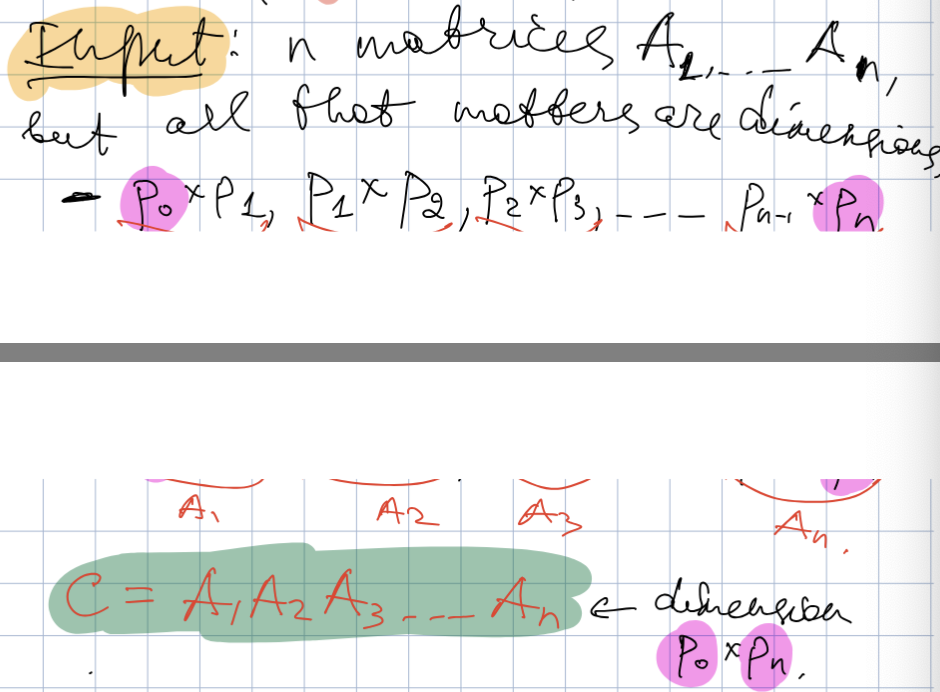 Input: n matrices A₁, ... Aₙ,
but all that matters are dimensions,
- P₀ × P₁, P₁ × P₂, P₂ × P₃, ---- Pₙ₋₁ × Pₙ
A₁ A₂ A₃ Aₙ.
C = A₁ A₂ A₃ ---- Aₙ ← dimension
P₀ × Pₙ.